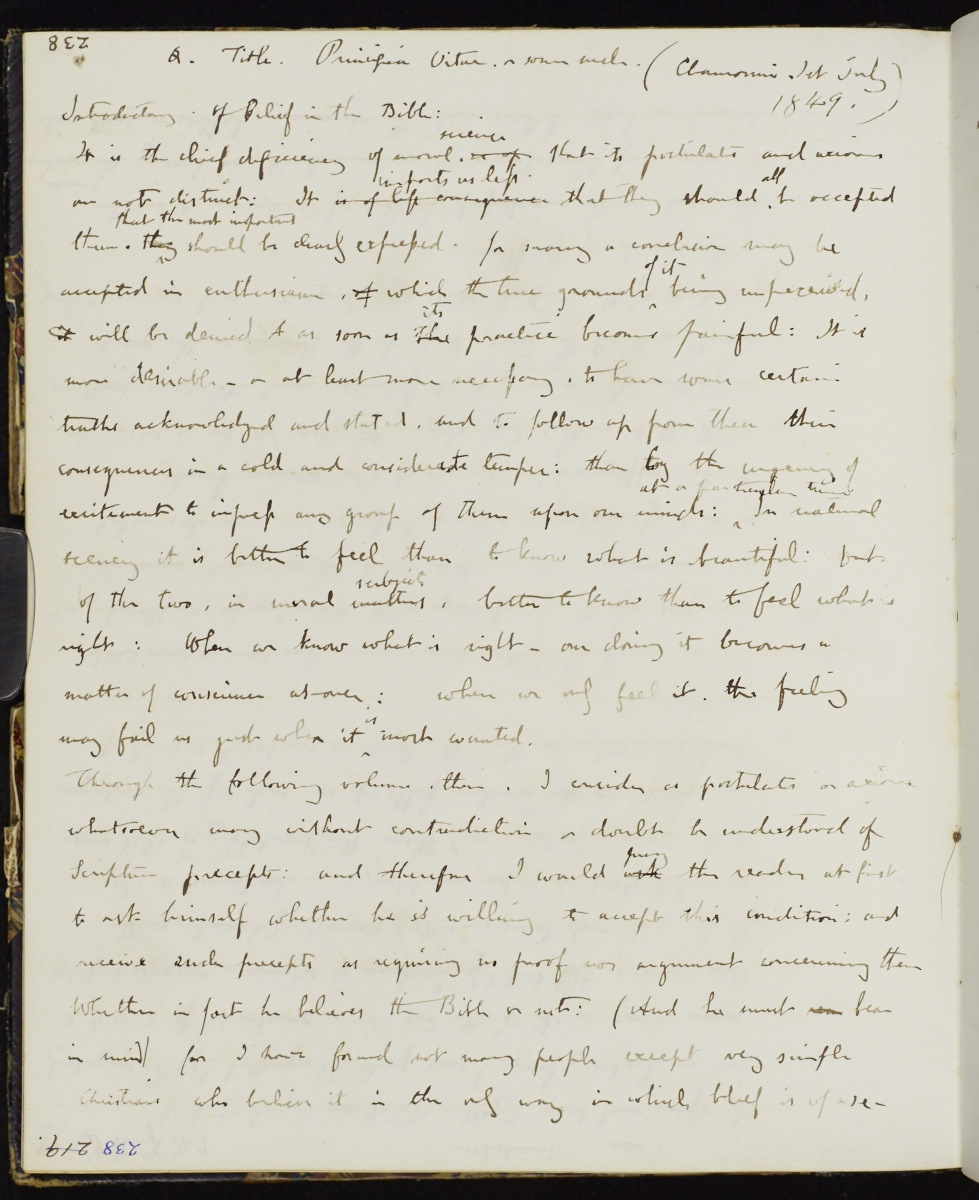 238
A. Title. Principia Vitae. or some such. (Chamouni 1st July
1849.)
Introductory: Of Belief in the Bible:
science
It is the chief deficiency of moral that its postulates and axioms
imports us less all
are not distinct: It is of less consequence that they should be accepted
that the most important
then. they should be clearly expressed. for many a conclusion may be
of it
accepted in enthusiasm, of which the true grounds being unperceived,
its
it will be denied as soon as the practice becomes painful: It is
more desirable - or at least more necessary, to have some certain
truths acknowledged and stated, and to follow up from these their
consequences in a cold and considerate temper: than by the urgency of
at a particular time
excitement to impress any group of them upon our minds: In natural
scenery it is better to feel than to know what is beautiful: but
subjects
of the two, in moral matters, better to know than to feel what is
right: When we know what is right - our doing it becomes a
matter of conscience at once: when we only feel it, the feeling
is
may fail us just when it most wanted.
Through the following volume, then, I consider as postulates or axioms
whatsoever may without contradiction or doubt be understood of
Scripture precepts: and therefore I would
pray
ask the reader at first
to ask himself whether he is willing to accept this condition: and
receive such precepts as requiring no proof nor argument concerning them
Whether in fact he believes the Bible or not: (And he must bear
in mind) for I have found not many people except very simple
Christians who believe it in the only way in which blief is of use -
219. 238